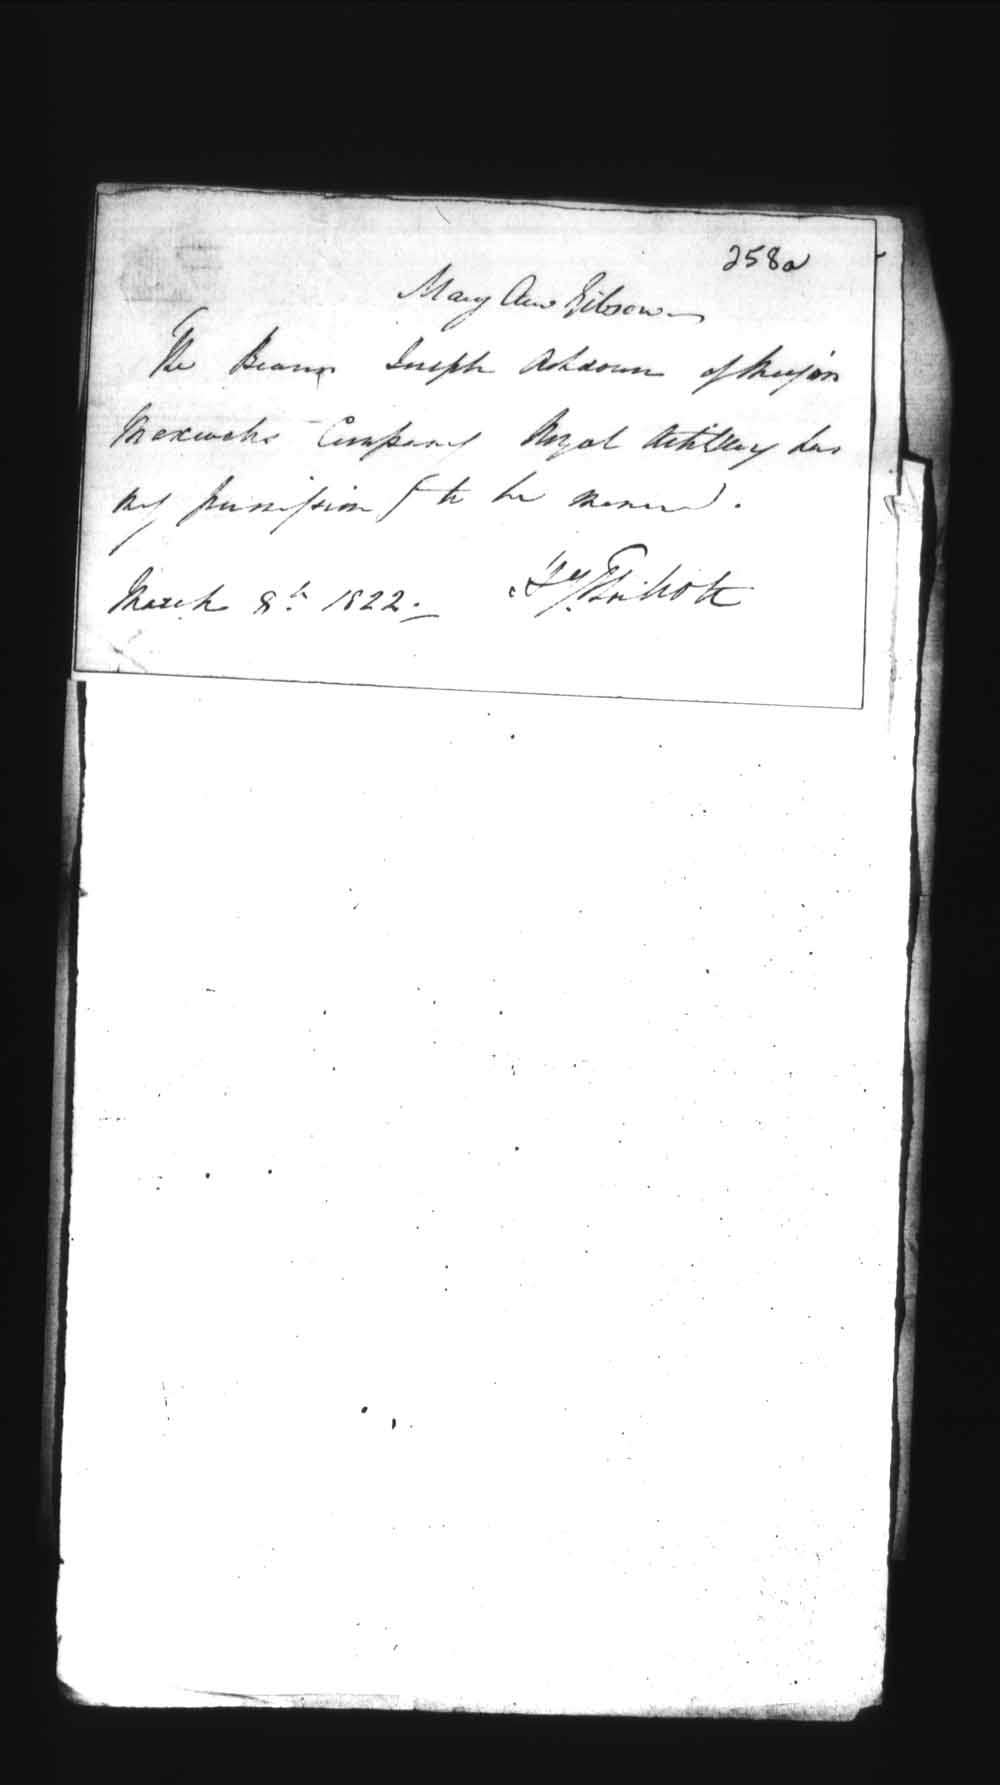 258a
Mary Ann Gibson
The Bearer Joseph Ashdown of Major
Maxwells Company Royal Artillery has
my permission to be married.
March 8th 1822.